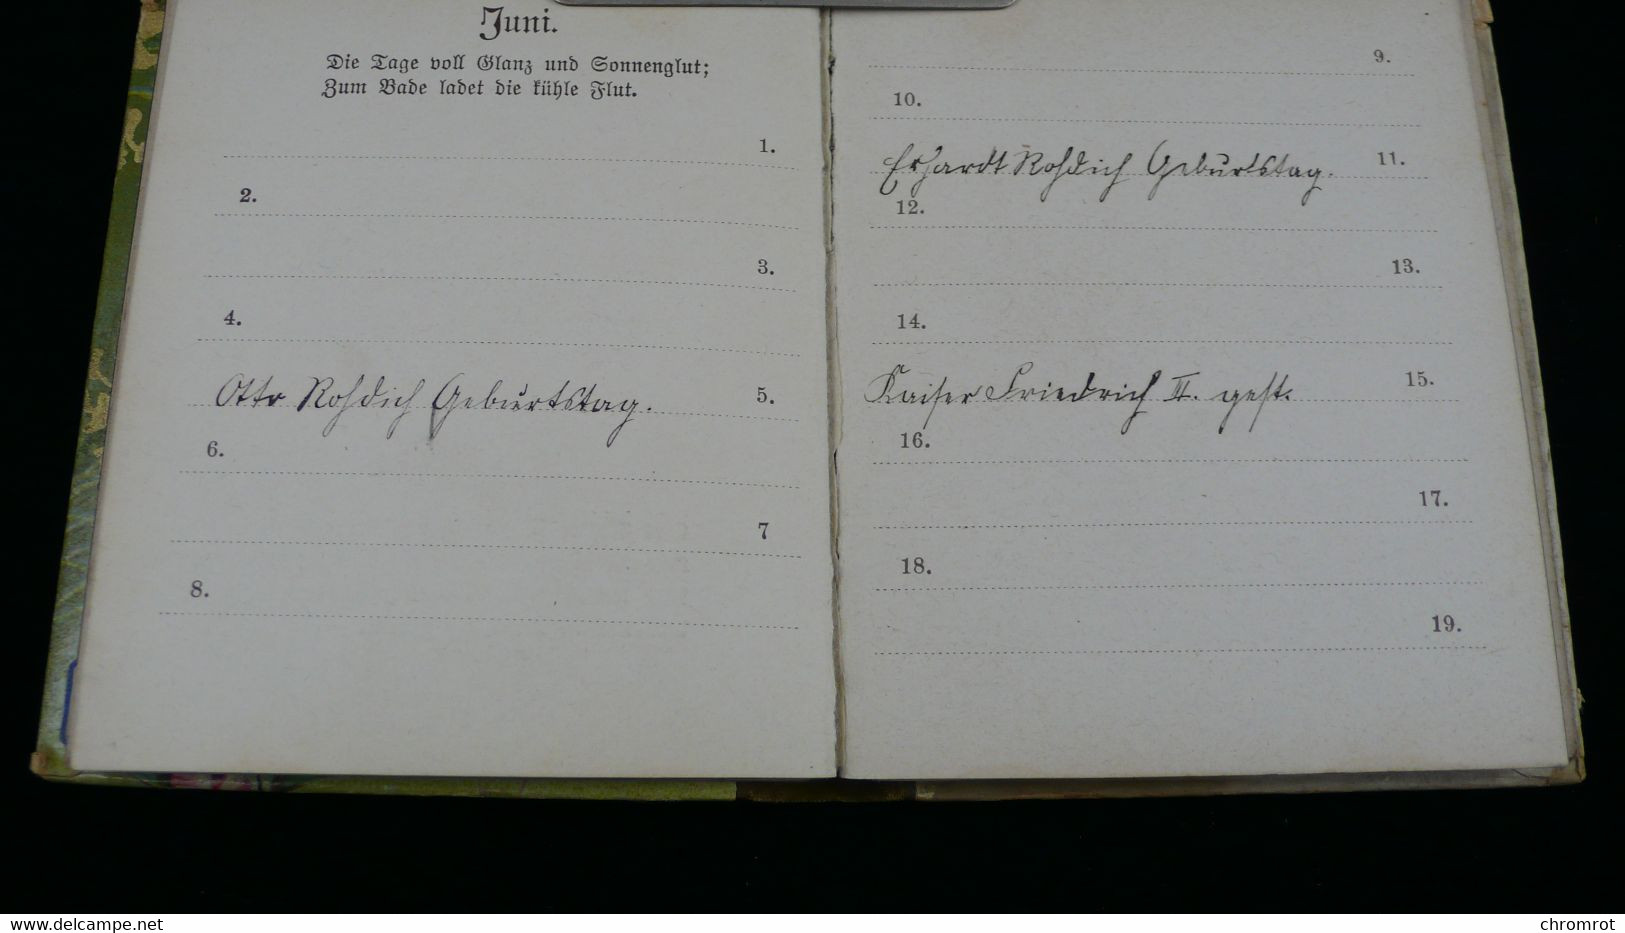 Juni.
Die Tage voll Glanz und Sonnenglut;
Zum Bade ladet die kühle Flut.
1.
2.
3.
4.
Otto Rohdich Geburtstag. 5.
6.
7
8.
9.
10.
Erhardt Rohdich Geburtstag. 11.
12.
13.
14.
Kaiser Friedrich III. gest. 15.
16.
17.
18.
19.
www.delcampe.net
chromrot